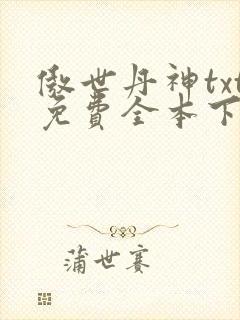 傲世丹神txt
免費全本下
蒲世赛